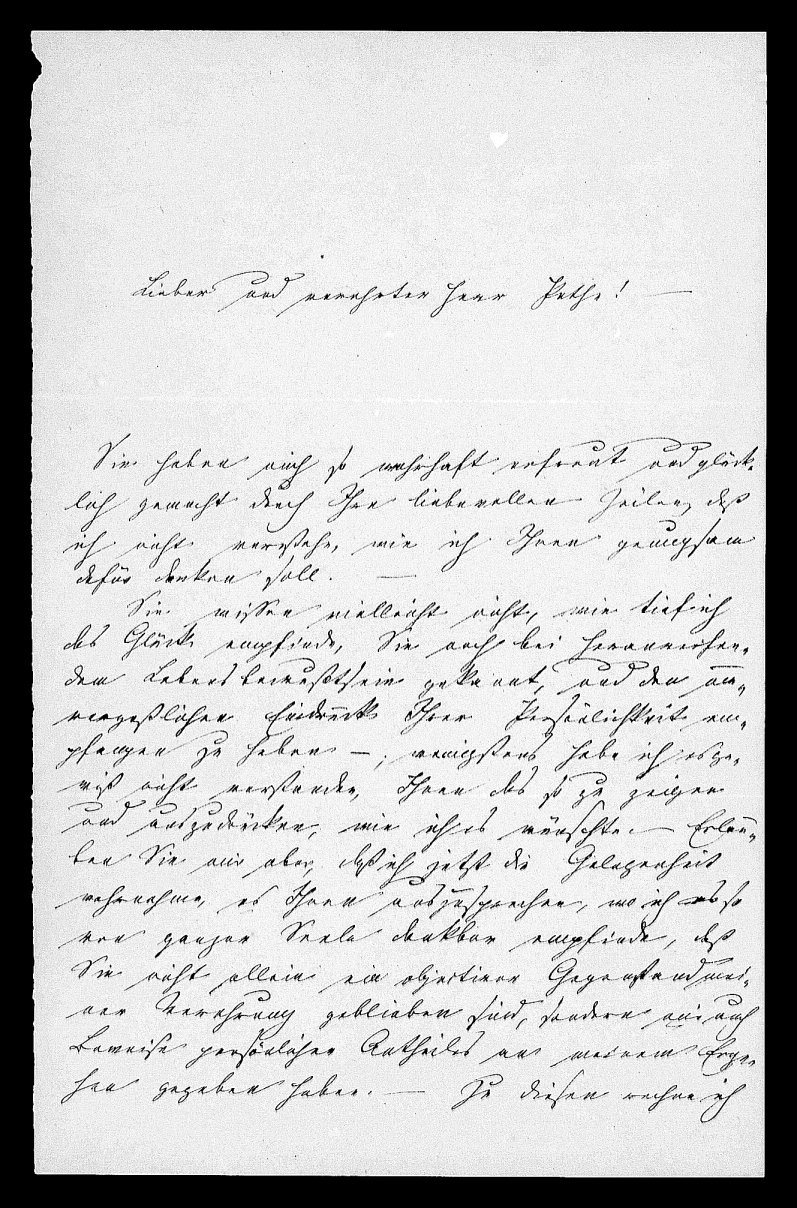 Lieber und verehrter Herr Pathe! —
Sie haben mich so wahrhaft erfreut und glück-
lich gemacht durch Ihre liebevollen Zeilen, daß
ich nicht verstehe, wie ich Ihnen genugsam
dafür danken soll. —
Sie wissen vielleicht nicht, wie tief ich
das Glück empfinde, Sie noch bei heranreifen-
dem Lebensbewußtsein gekannt, und den un-
vergeßlichen Eindruck Ihrer Persönlichkeit em-
pfangen zu haben —; wenigstens habe ich es ge-
wiß nicht verstanden, Ihnen das so zu zeigen
und auszudrücken, wie ich es wünschte. — Erlau-
ben Sie mir aber, daß ich jetzt die Gelegenheit
wahrnehme, es Ihnen auszusprechen, wo ich es so
von ganzer Seele dankbar empfinde, daß
Sie nicht allein ein objectiver Gegenstand mei-
ner Verehrung geblieben sind, sondern mir auch
Beweise persönlichen Antheiles an meinem Erge-
hen gegeben haben. — Zu diesen rechne ich